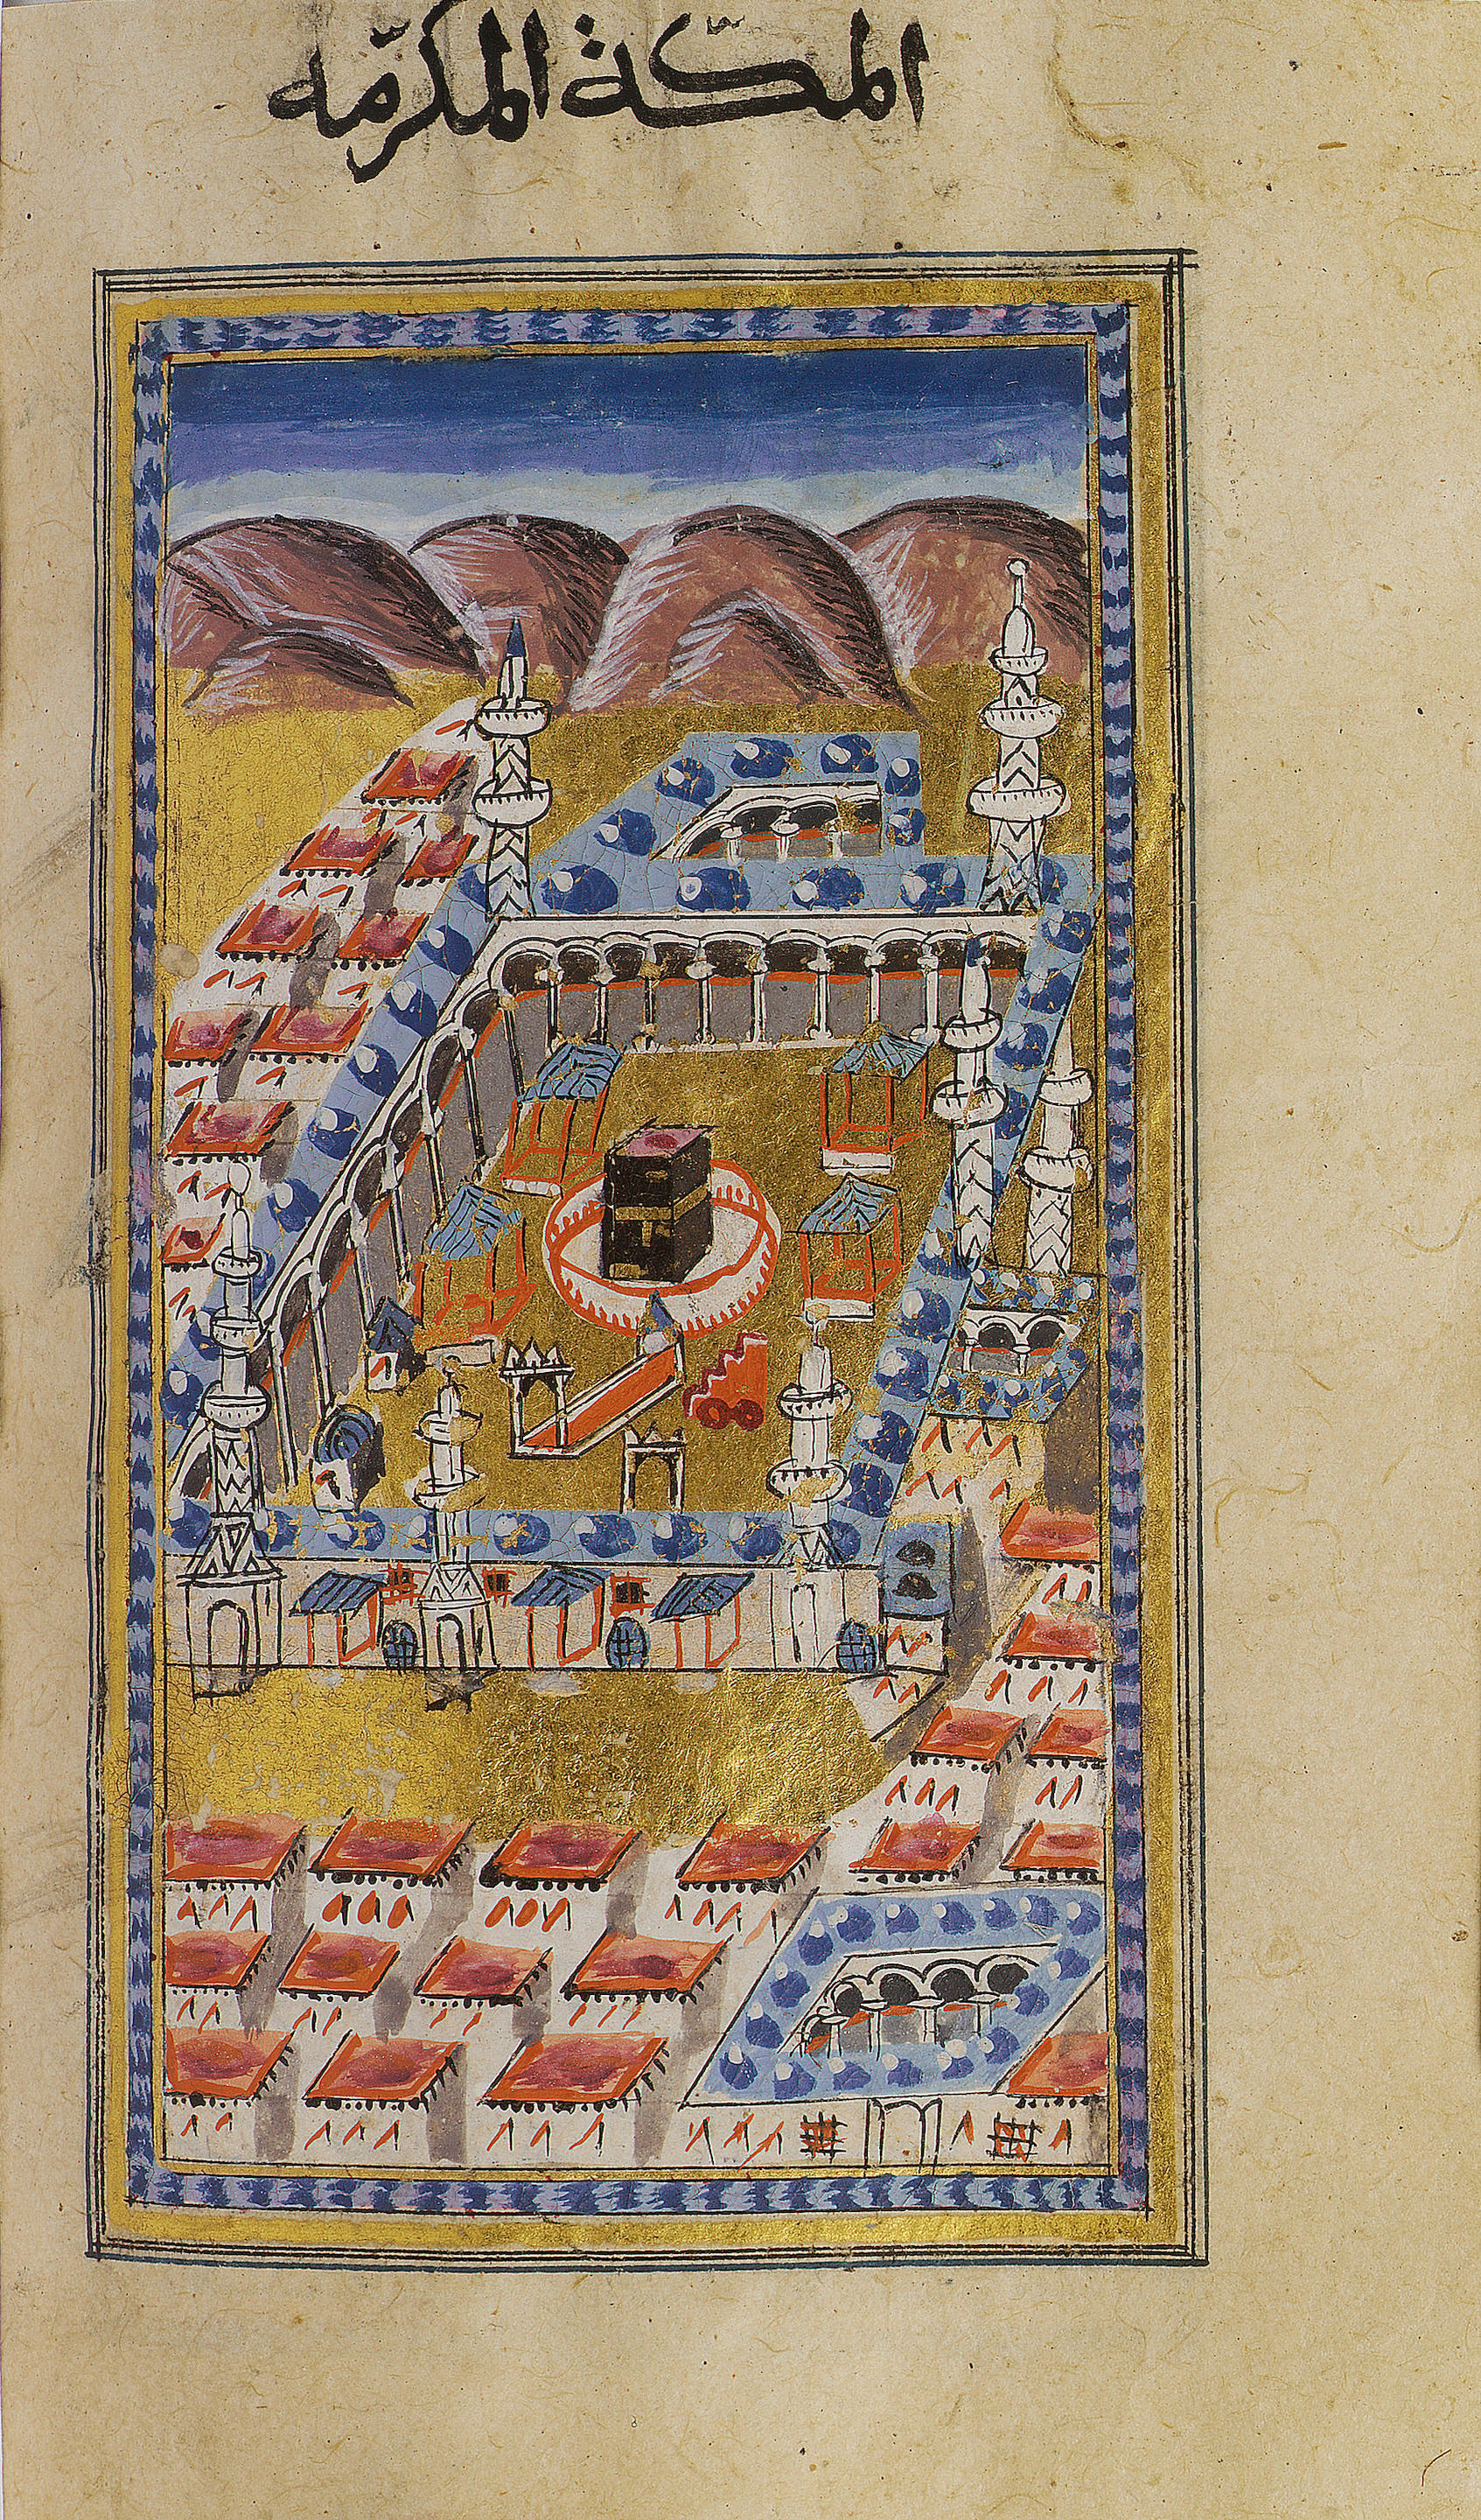 المكة المكرّمه